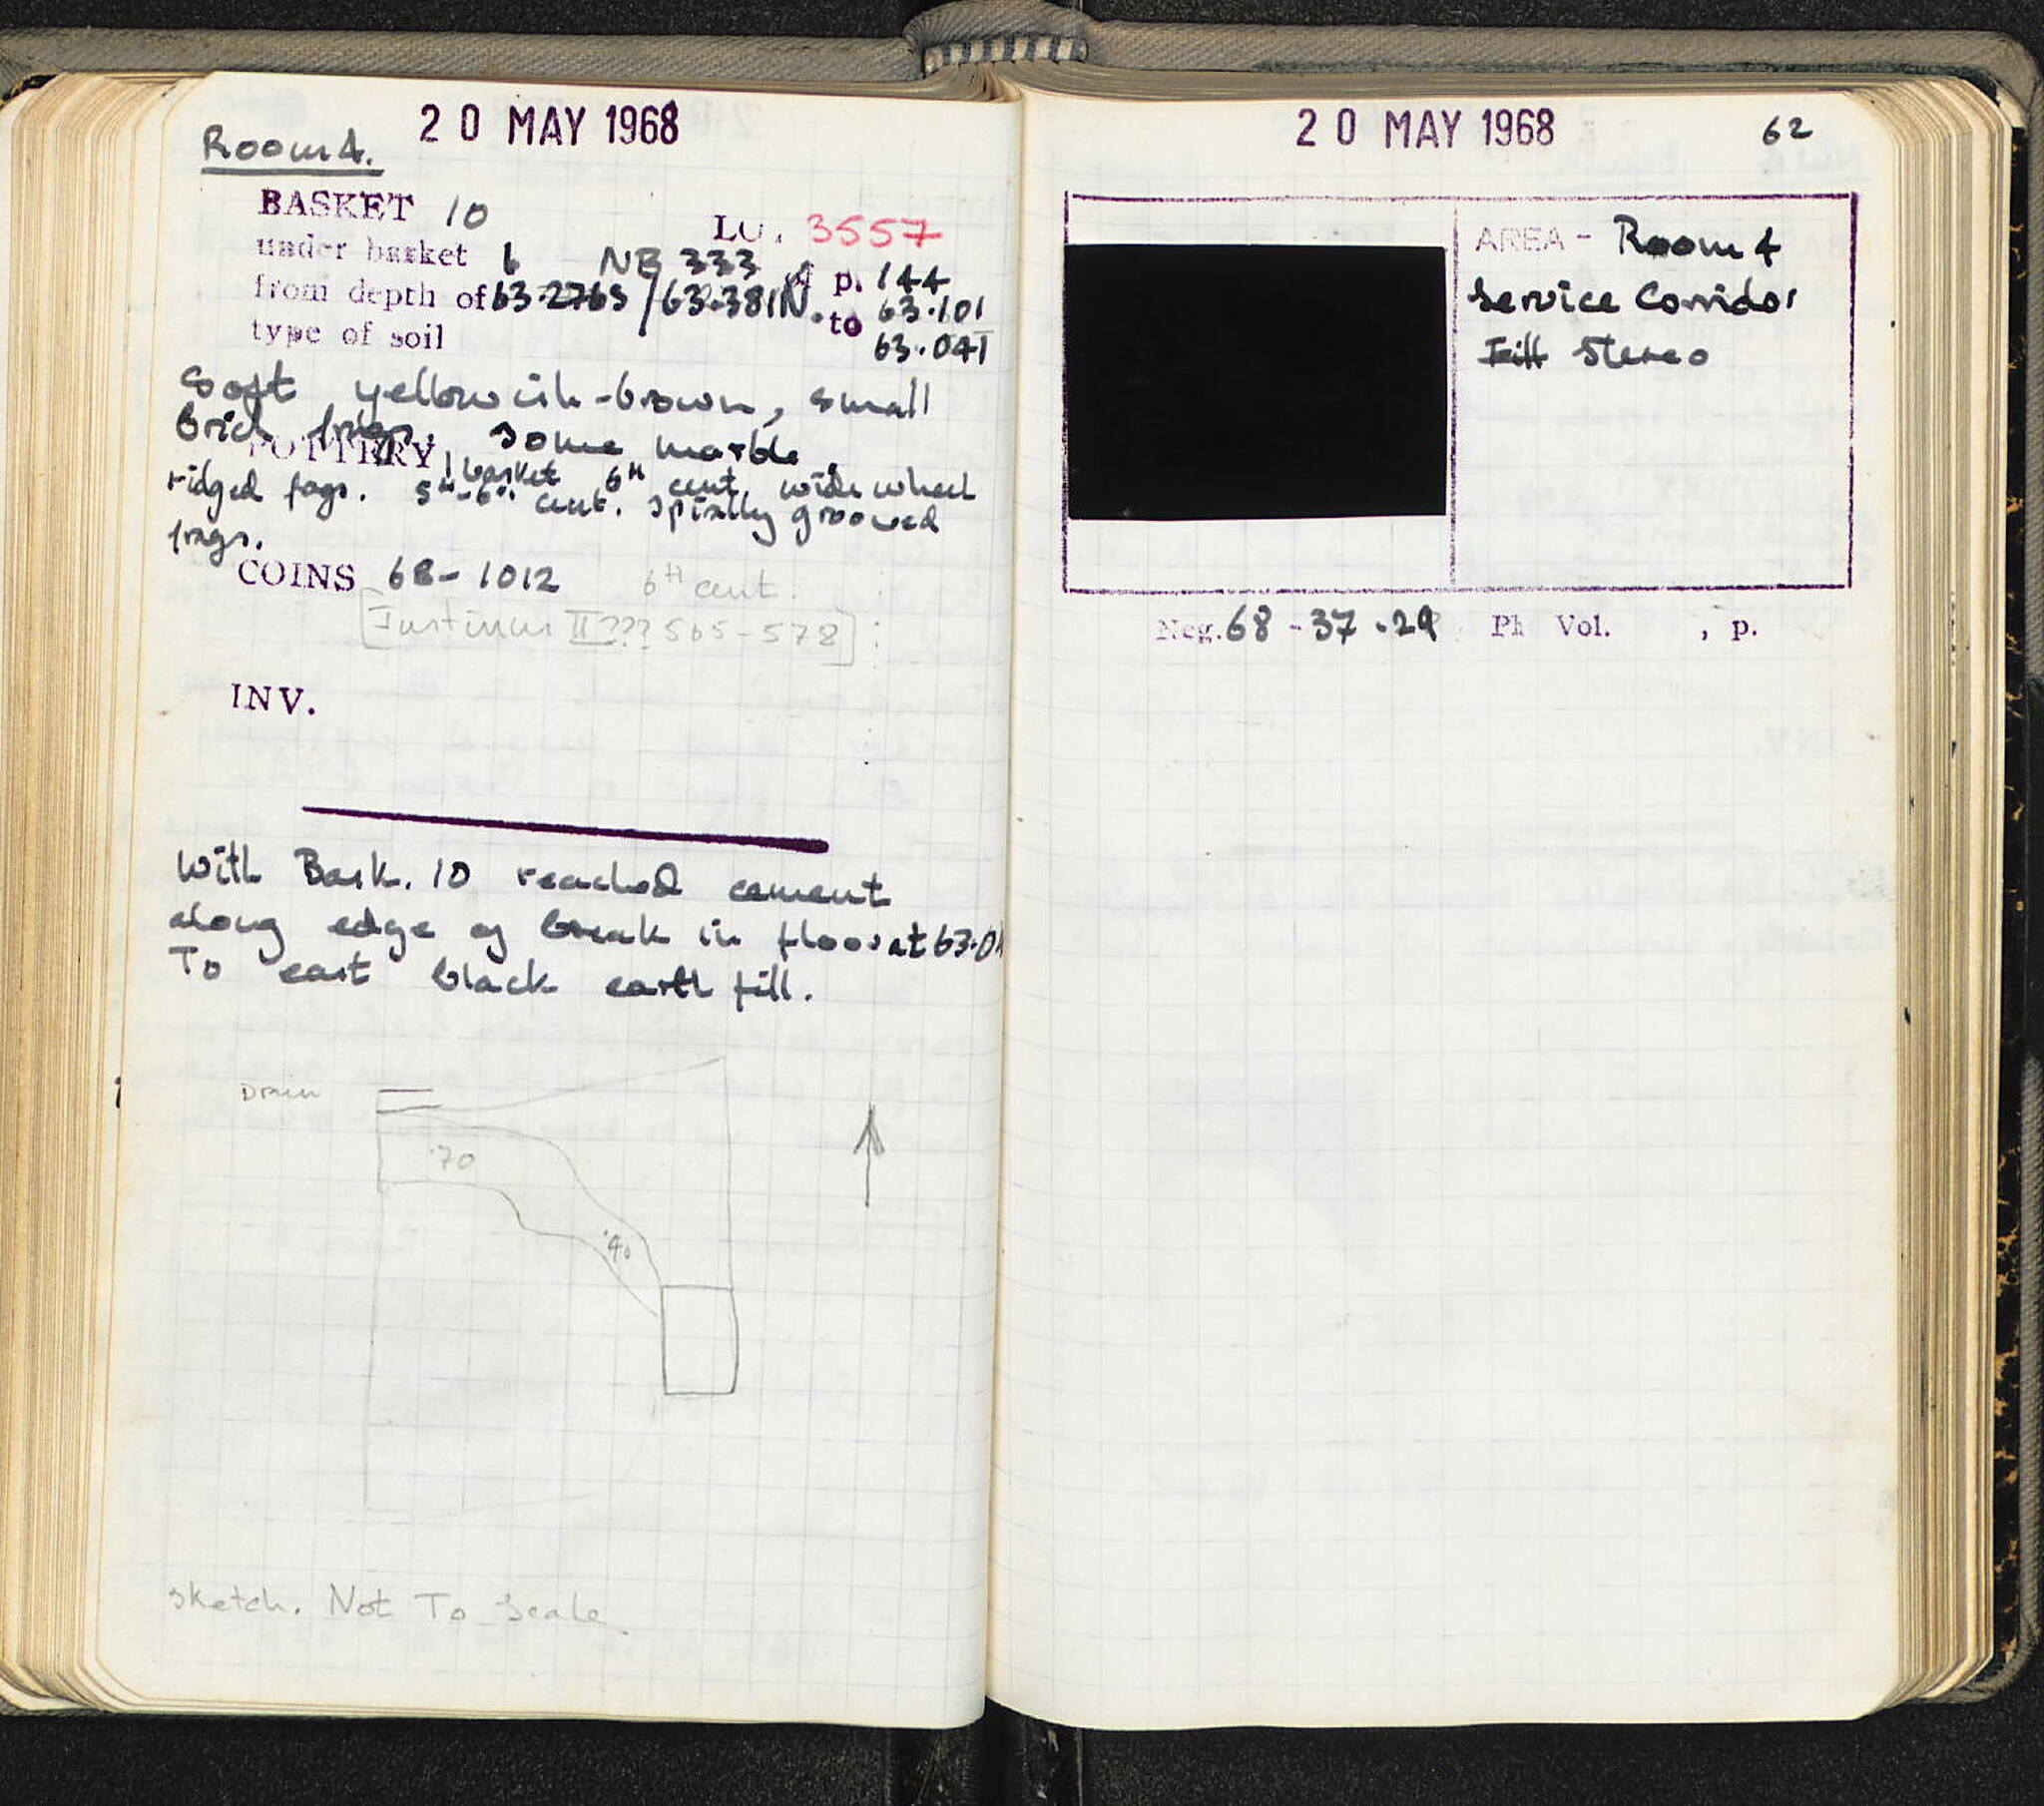 Room 4.
20 MAY 1968
BASKET 10
LOT 3557
under basket 6 NB 333 p. 144
from depth of 63.276S / 63.381N. to 63.101
63.041
type of soil
Soft yellowish-brown, small
brick frags. some marble.
POTTERY 1 basket 6th cent. wide wheel
ridged fags. 5th-6th cent. spirally grooved
frags.
COINS 68-1012 6TH cent.
[Iustinus II??? 565-578]
INV.
With Bask. 10 reached cement
along edge of break in floor at 63.0
To east black earth fill.
Drain
.70
.40
sketch. Not To Scale
20 MAY 1968
62
AREA - Room 4
Service Corridor
Fill Stereo
Neg. 68-37-29 Ph Vol. , p.